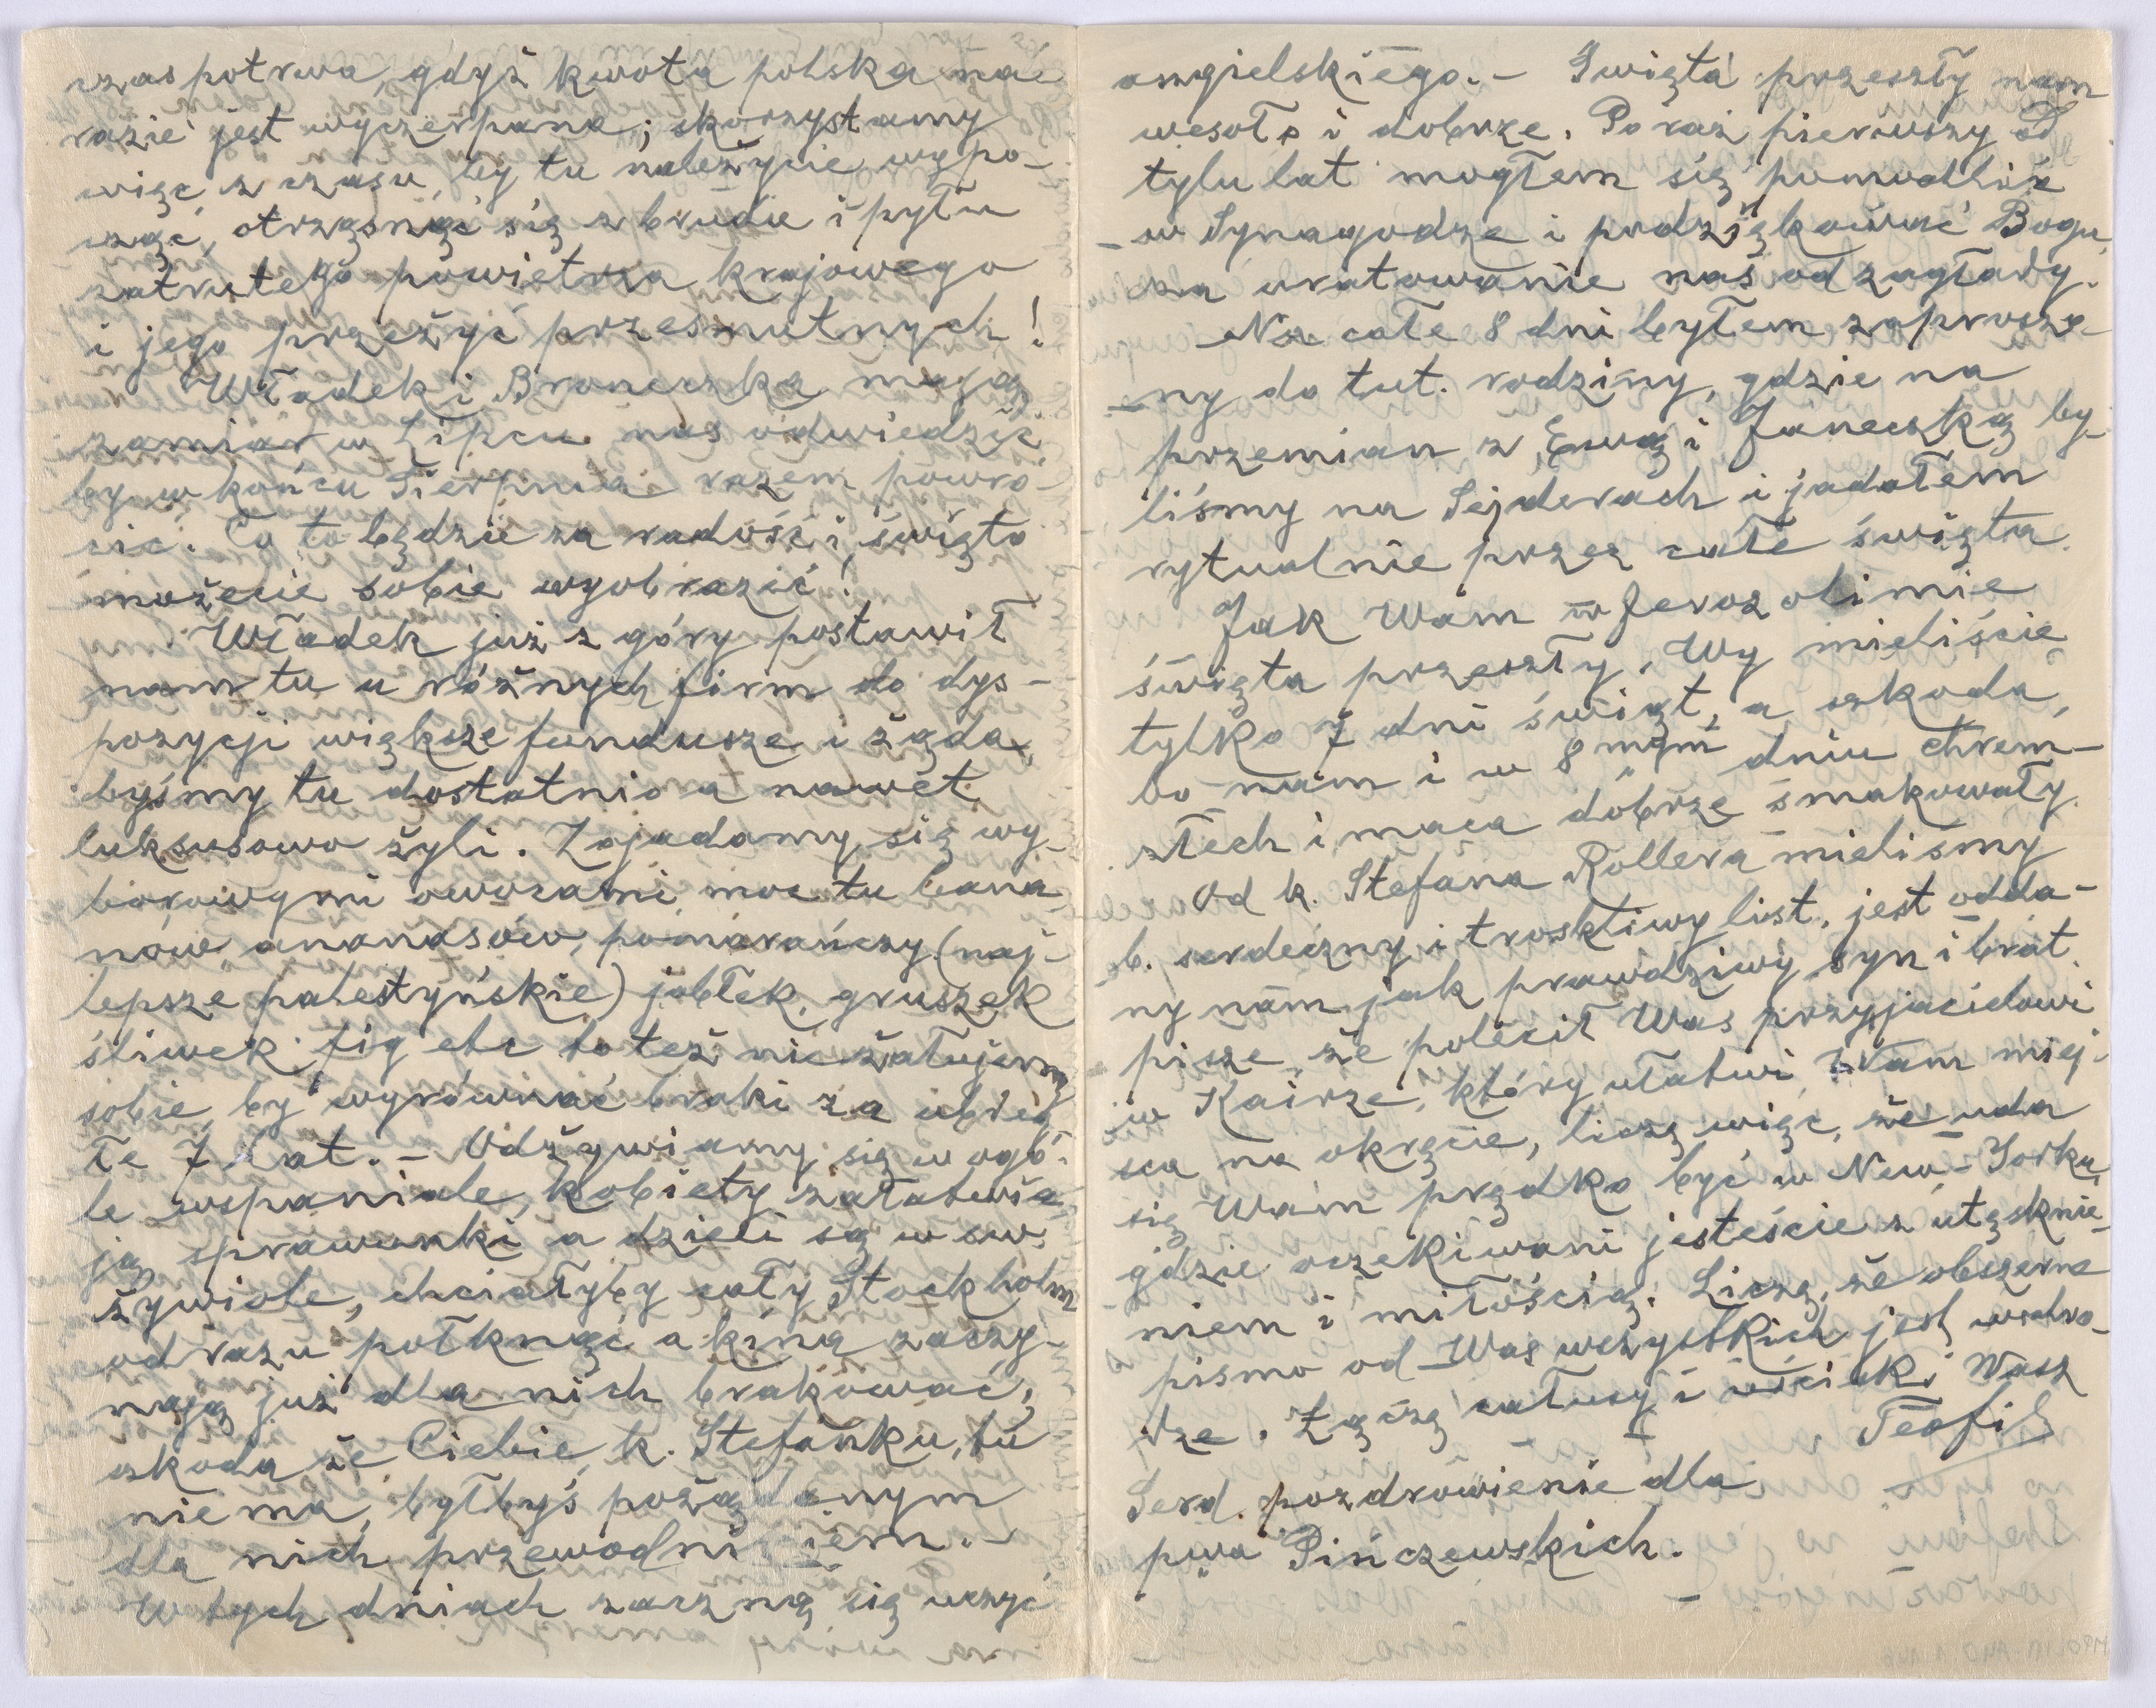 czas potrwa, gdyż kwota polska na
razie jest wyczerpana; skorzystamy
więc z czasu, by tu należycie wypo-
cząć, otrząsnąć się z brudu i pyłu
zatrutego powietrza krajowego
i jego przeżyć przesmutnych!
Władek i Broneczka mają
zamiar w Lipcu nas odwiedzić
by w końcu Sierpnia razem powró-
cić. Co to będzie za radość i święto
możecie sobie wyobrazić!
Władek już z góry postawił
nam tu u różnych firm do dys-
pozycji większe fundusze i żąda,
byśmy tu dostatnio a nawet
luksusowo żyli. Zajadamy się wy-
borowymi owocami, moc tu bana-
nów, ananasów, pomarańczy (naj-
lepsze palestyńskie) jabłek, gruszek
śliwek fig etc to też nie żałujemy
sobie, by wyrównać braki za ubieg-
łe 7 lat. - Odżywiamy się w ogó-
le wspaniale, kobiety załatwia-
ją sprawunki a dzieci są w sw.
żywiole, chciałyby cały Stockholm
od razu połknąć a kina zaczy-
nają już dla nich brakować;
szkoda że Ciebie, k. Stefanku, tu
nie ma, byłbyś pożądanym
dla nich przewodnikiem. -
W tych dniach zaczną się uczyć
angielskiego. - Święta przeszły nam
wesoło i dobrze. Po raz pierwszy od
tylu lat mogłem się pomodlić
w Synagodze i podziękować Bogu
za uratowanie nas od zagłady.
Na całe 8 dni byłem zaprosze-
ny do tut. rodziny, gdzie na
przemian z Ewą i Janeczką by-
liśmy na Sejderach i jadałem
rytualnie przez całe święta.
Jak Wam w Jerozolimie
święta przeszły. Wy mieliście
tylko 7 dni świąt, a szkoda,
bo nam i w 8mym dniu chrem-
złech i maca dobrze smakowały.
Od k. Stefana Rollera mieliśmy
b. serdeczny i troskliwy list, jest odda-
ny nam jak prawdziwy syn i brat.
pisze, że polecił Was przyjacielowi
w Kairze, który ułatwi Wam miej-
sca na okręcie, liczę więc, że uda
się Wam prędko być w New-Yorku,
gdzie oczekiwani jesteście z utęsknie-
niem i miłością. Liczę, że obszerne
pismo od Was wszystkich jest w dro-
dze. Łączę całusy i uściski Wasz
Teofil
Serd. pozdrowienie dla
pwa Pińczewskich.